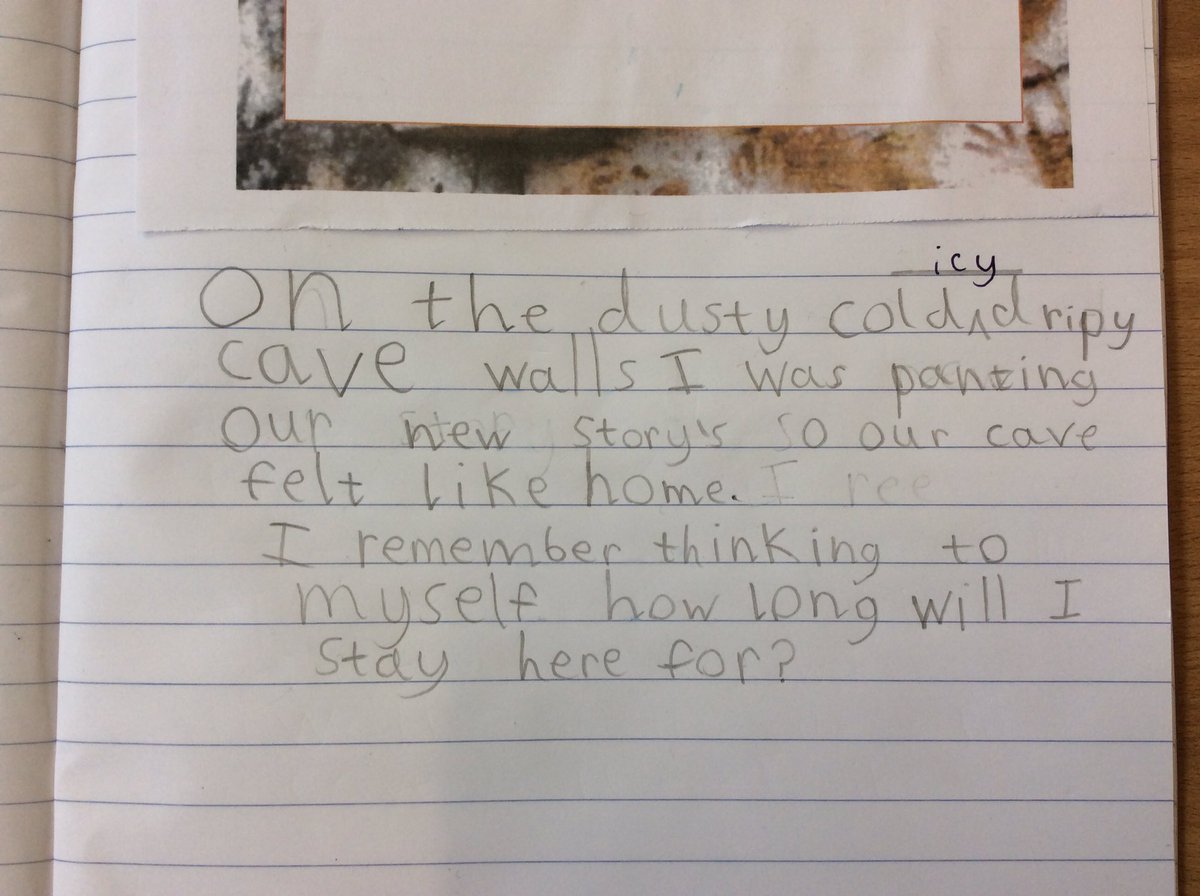 icy
On the dusty cold^dripy
cave walls I was panting
our new story's so our cave
felt like home. I ree
I remember thinking to
myself how long will I
stay here for?